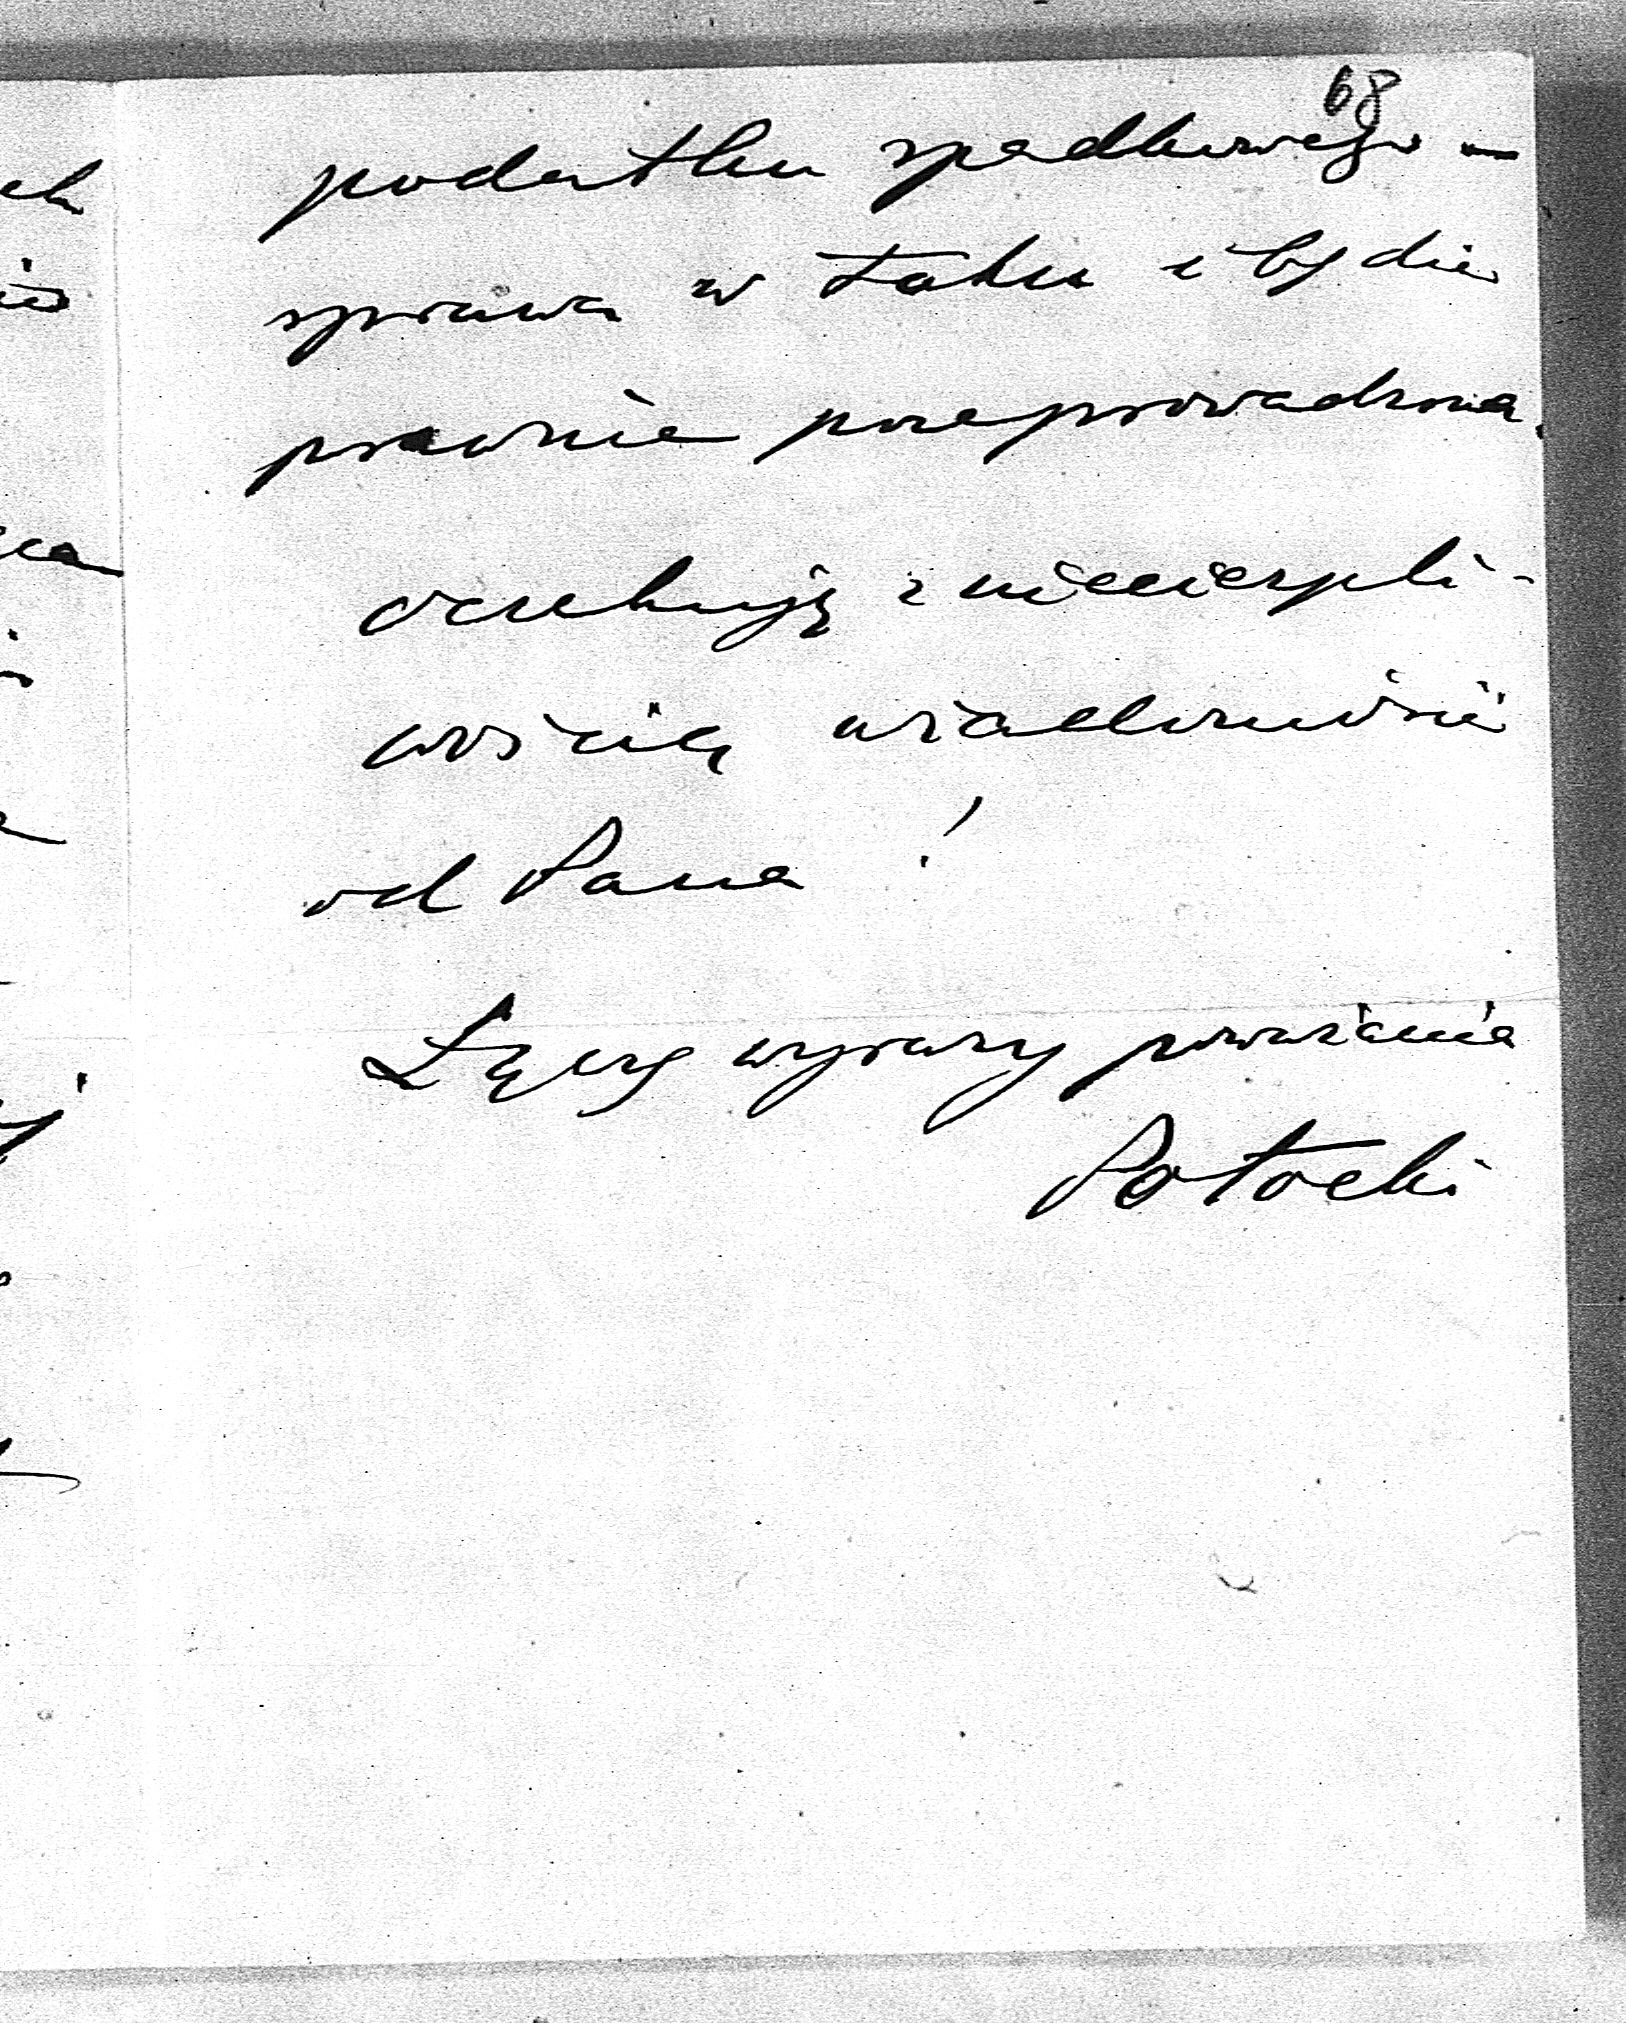 68
podatku spadkowego —
sprawa w toku i będzie
prawnie przeprowadzona.
oczekuję z niecierpli-
wością wiadomości
od Pana !
Łączę wyrazy poważania
Potocki